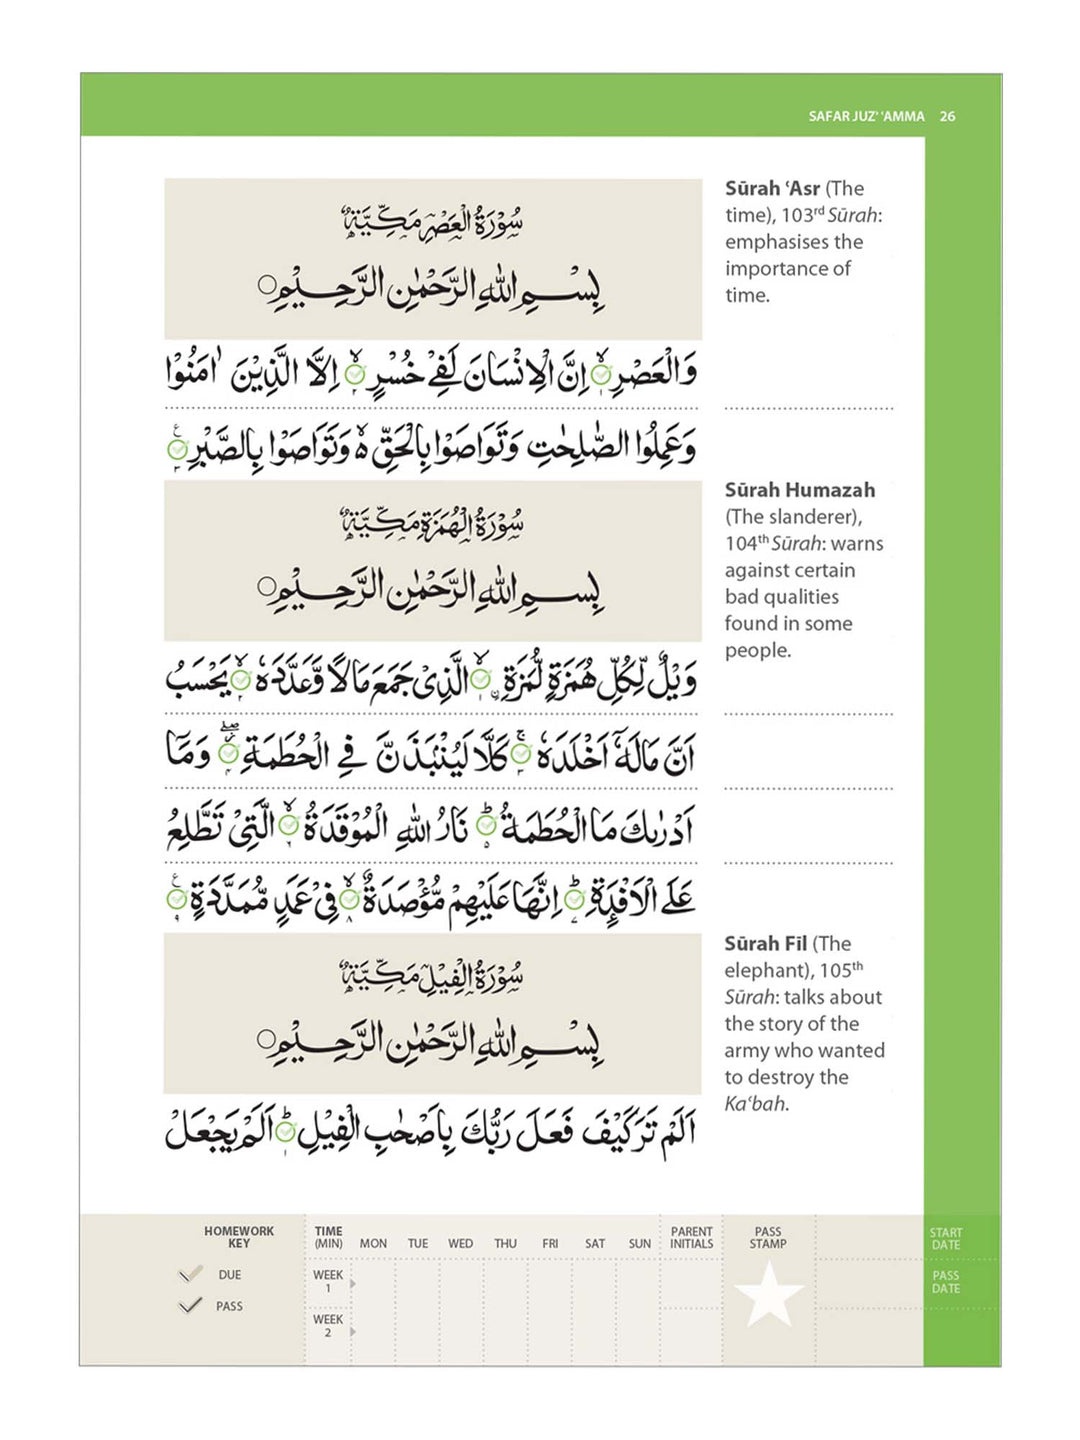 SAFAR JUZ’ ‘AMMA 26
سُوْرَةُ الْعَصْرِ مَكِّيَّةٌ
بِسْمِ اللهِ الرَّحْمٰنِ الرَّحِيْمِ
Sūrah ‘Asr (The
time), 103rd Sūrah:
emphasises the
importance of
time.
وَالْعَصْرِ ۙ۱ اِنَّ الْاِنْسَانَ لَفِيْ خُسْرٍ ۙ۲ اِلَّا الَّذِيْنَ اٰمَنُوْا
وَعَمِلُوا الصّٰلِحٰتِ وَتَوَاصَوْا بِالْحَقِّ ەۙ وَتَوَاصَوْا بِالصَّبْرِ ۳ع
سُوْرَةُ الْهُمَزَةِ مَكِّيَّةٌ
بِسْمِ اللهِ الرَّحْمٰنِ الرَّحِيْمِ
Sūrah Humazah
(The slanderer),
104th Sūrah: warns
against certain
bad qualities
found in some
people.
وَيْلٌ لِّكُلِّ هُمَزَةٍ لُّمَزَةٍ ۙ۱ الَّذِيْ جَمَعَ مَالًا وَّعَدَّدَهٗ ۙ۲ يَحْسَبُ
اَنَّ مَالَهٗٓ اَخْلَدَهٗ ۚ۳ كَلَّا لَيُنْۢبَذَنَّ فِي الْحُطَمَةِ ۖ۴ وَمَآ
اَدْرٰىكَ مَا الْحُطَمَةُ ؕ۵ نَارُ اللهِ الْمُوْقَدَةُ ۙ۶ الَّتِيْ تَطَّلِعُ
عَلَى الْاَفْـِٕدَةِ ؕ۷ اِنَّهَا عَلَيْهِمْ مُّؤْصَدَةٌ ۙ۸ فِيْ عَمَدٍ مُّمَدَّدَةٍ ۹ع
سُوْرَةُ الْفِيْلِ مَكِّيَّةٌ
بِسْمِ اللهِ الرَّحْمٰنِ الرَّحِيْمِ
Sūrah Fīl (The
elephant), 105th
Sūrah: talks about
the story of the
army who wanted
to destroy the
Ka‘bah.
اَلَمْ تَرَ كَيْفَ فَعَلَ رَبُّكَ بِاَصْحٰبِ الْفِيْلِ ؕ۱ اَلَمْ يَجْعَلْ
HOMEWORK
KEY
DUE
PASS
TIME
(MIN) MON TUE WED THU FRI SAT SUN
WEEK
1
WEEK
2
PARENT
INITIALS
PASS
STAMP
START
DATE
PASS
DATE